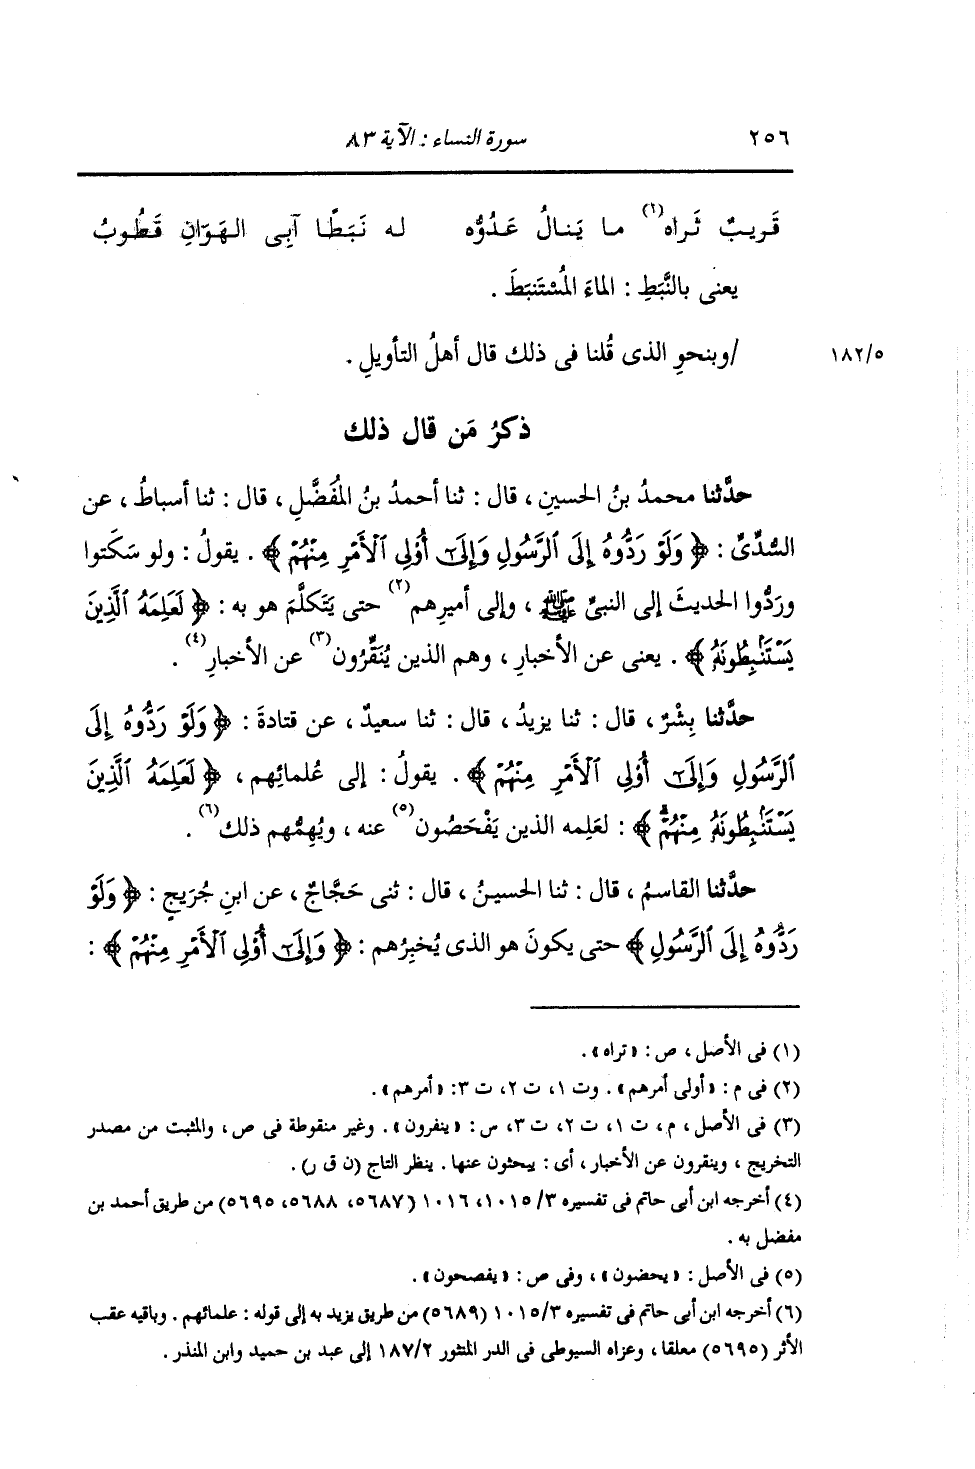 ٢٥٦ سورة النساء : الآية ٨٣
قَريبٌ ثَراه(١) ما يَنالُ عَدُوُّه له نَبَطًا آبِى الهَوَانِ قَطُوبُ
يعنى بالنَّبَطِ : الماءَ المُسْتَنبَطَ .
/وبنحوِ الذى قُلنا فى ذلك قال أهلُ التأويلِ . ١٨٢/٥
ذكرُ مَن قال ذلك
حدَّثنا محمدُ بنُ الحسينِ ، قال : ثنا أحمدُ بنُ المُفَضَّلِ ، قال : ثنا أسباطُ ، عن
السُّدِّىِّ : ﴿ وَلَوْ رَدُّوهُ إِلَى ٱلرَّسُولِ وَإِلَىٰٓ أُوْلِى ٱلْأَمْرِ مِنْهُمْ ﴾ . يقولُ : ولو سَكَتوا
ورَدُّوا الحديثَ إلى النبىِّ ﷺ ، وإلى أميرِهم(٢) حتى يَتَكلَّمَ هو به : ﴿ لَعَلِمَهُ ٱلَّذِينَ
يَسْتَنۢبِطُونَهُۥ ﴾ . يعنى عن الأخبارِ ، وهم الذين يُنَقِّرُون(٣) عن الأخبارِ(٤) .
حدَّثنا بِشْرٌ ، قال : ثنا يزيدُ ، قال : ثنا سعيدٌ ، عن قتادةَ : ﴿ وَلَوْ رَدُّوهُ إِلَى
ٱلرَّسُولِ وَإِلَىٰٓ أُوْلِى ٱلْأَمْرِ مِنْهُمْ ﴾ . يقولُ : إلى عُلمائِهم ، ﴿ لَعَلِمَهُ ٱلَّذِينَ
يَسْتَنۢبِطُونَهُۥ مِنْهُمْۗ ﴾ : لعَلِمه الذين يَفْحَصُون(٥) عنه ، ويُهِمُّهم ذلك(٦) .
حدَّثنا القاسمُ ، قال : ثنا الحسينُ ، قال : ثنى حَجَّاجٌ ، عن ابنِ جُرَيجٍ : ﴿ وَلَوْ
رَدُّوهُ إِلَى ٱلرَّسُولِ ﴾ حتى يكونَ هو الذى يُخبِرُهم : ﴿ وَإِلَىٰٓ أُوْلِى ٱلْأَمْرِ مِنْهُمْ ﴾ :
(١) فى الأصل ، ص : « تراه » .
(٢) فى م : « أولى أمرهم » . وت ١، ت ٢، ت ٣: « أمرهم » .
(٣) فى الأصل ، م، ت ١، ت ٢، ت ٣، س : « ينفرون » . وغير منقوطة فى ص ، والمثبت من مصدر
التخريج ، وينقرون عن الأخبار ، أى : يبحثون عنها. ينظر التاج (ن ق ر) .
(٤) أخرجه ابن أبى حاتم فى تفسيره ٣/ ١٠١٥، ١٠١٦ (٥٦٨٧، ٥٦٨٨، ٥٦٩٥) من طريق أحمد بن
مفضل به .
(٥) فى الأصل : « يحضون » ، وفى ص : « يفصحون » .
(٦) أخرجه ابن أبى حاتم فى تفسيره ١٠١٥/٣ (٥٦٨٩) من طريق يزيد به إلى قوله : علمائهم . وباقيه عقب
الأثر (٥٦٩٥) معلقا ، وعزاه السيوطى فى الدر المنثور ١٨٧/٢ إلى عبد بن حميد وابن المنذر .